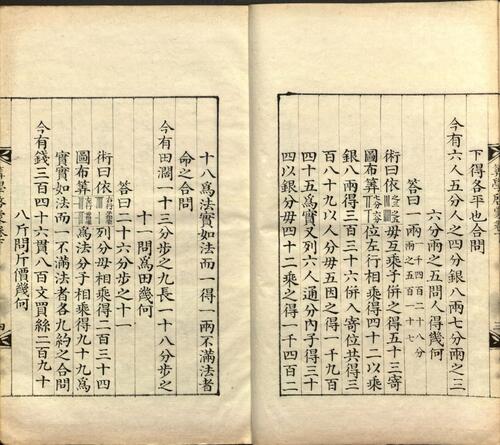 下得各平也合問
今有六人五分人之四分銀八兩七分兩之三
六分兩之五問人得幾何
答曰一兩一千四百二十八分兩之五百一十七
術曰依分毋互乘子併之得五十三寄
圖布筭位左行相乘得四十二以乘
銀八兩得三百三十六併入寄位共得三
百八十九以人分毋五因之得一千九百
四十五爲實又列六人通分內子得三十
四以銀分毋四十二乘之得一千四百二
十八爲法實如法而一得一兩不滿法者
命之合問
今有田濶一十三分步之九長一十八分步之
十一問爲田幾何
答曰二十六分步之十一
術曰依列分毋相乘得二百三十四
圖布筭爲法分子相乘得九十九爲
實實如法而一不滿法者各九約之合問
今有錢三百四十六貫八百文買絲二百九十
八斤問斤價幾何